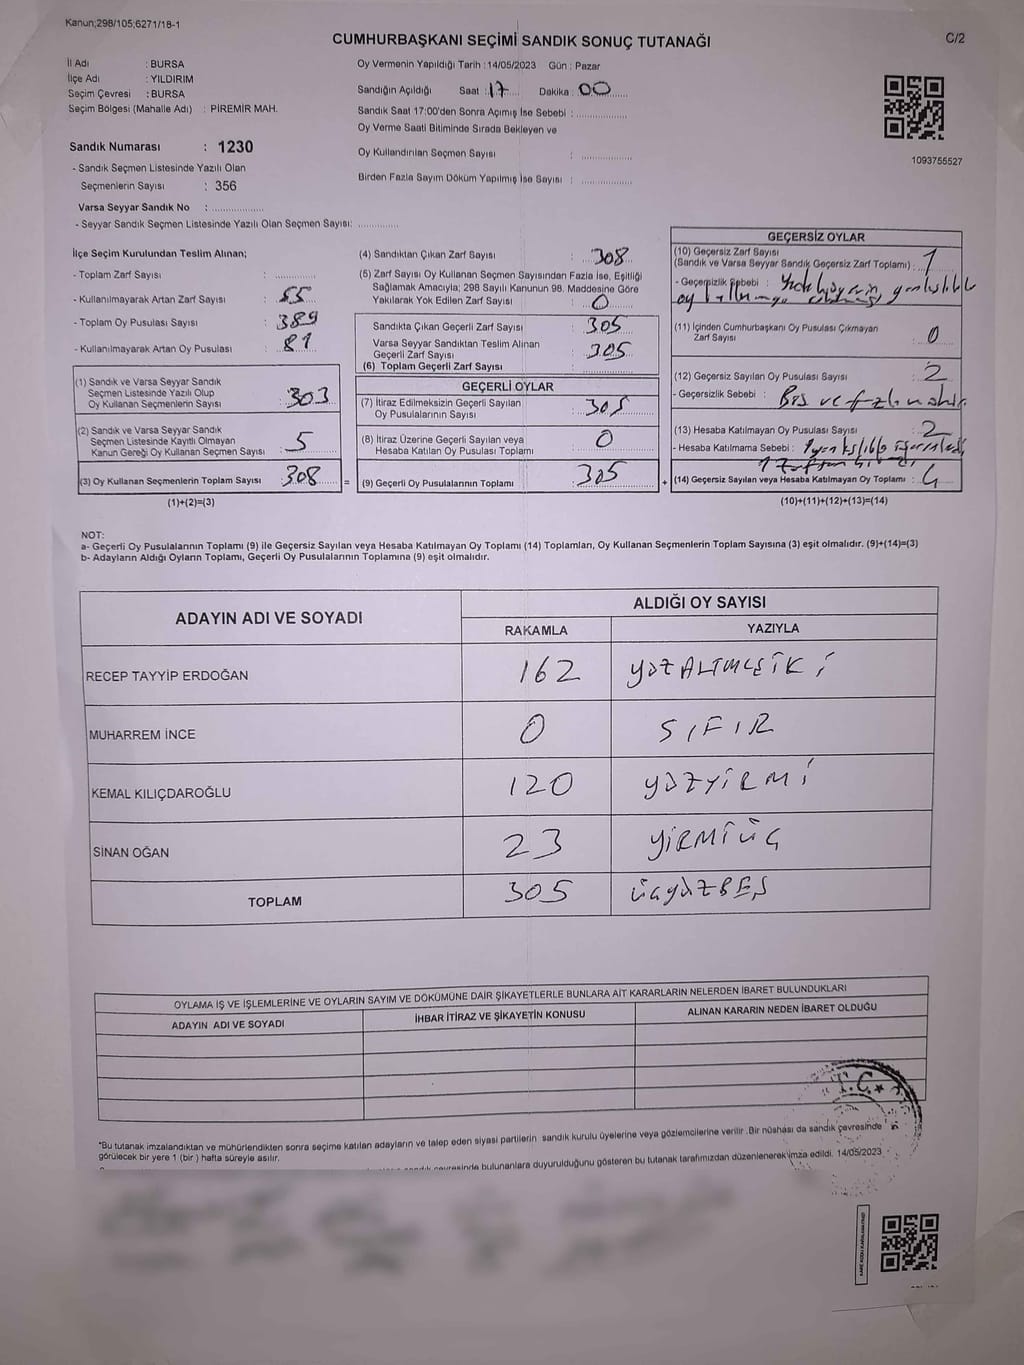 Kanun;298/105;6271/18-1
C/2
CUMHURBAŞKANI SEÇİMİ SANDIK SONUÇ TUTANAĞI
İl Adı : BURSA
İlçe Adı : YILDIRIM
Seçim Çevresi : BURSA
Seçim Bölgesi (Mahalle Adı) : PİREMİR MAH.
Sandık Numarası : 1230
- Sandık Seçmen Listesinde Yazılı Olan
Seçmenlerin Sayısı : 356
Varsa Seyyar Sandık No : ..................
- Seyyar Sandık Seçmen Listesinde Yazılı Olan Seçmen Sayısı: ..............
Oy Vermenin Yapıldığı Tarih : 14/05/2023 Gün : Pazar
Sandığın Açıldığı Saat : 17 Dakika : 00
Sandık Saat 17:00'den Sonra Açımış İse Sebebi : .................
Oy Verme Saati Bitiminde Sırada Bekleyen ve
Oy Kullandırılan Seçmen Sayısı : .................
Birden Fazla Sayım Döküm Yapılmış İse Sayısı : .................
1093755527
İlçe Seçim Kurulundan Teslim Alınan;
- Toplam Zarf Sayısı : .............
- Kullanılmayarak Artan Zarf Sayısı : 55
- Toplam Oy Pusulası Sayısı : 389
- Kullanılmayarak Artan Oy Pusulası : 81
(1) Sandık ve Varsa Seyyar Sandık
Seçmen Listesinde Yazılı Olup
Oy Kullanan Seçmenlerin Sayısı 303
(2) Sandık ve Varsa Seyyar Sandık
Seçmen Listesinde Kayıtlı Olmayan
Kanun Gereği Oy Kullanan Seçmen Sayısı 5
(3) Oy Kullanan Seçmenlerin Toplam Sayısı 308 =
(1)+(2)=(3)
(4) Sandıktan Çıkan Zarf Sayısı : 308
(5) Zarf Sayısı Oy Kullanan Seçmen Sayısından Fazla İse, Eşitliği
Sağlamak Amacıyla; 298 Sayılı Kanunun 98. Maddesine Göre
Yakılarak Yok Edilen Zarf Sayısı : 0
Sandıkta Çıkan Geçerli Zarf Sayısı : 305
Varsa Seyyar Sandıktan Teslim Alınan
Geçerli Zarf Sayısı : 305
(6) Toplam Geçerli Zarf Sayısı :
GEÇERLİ OYLAR
(7) İtiraz Edilmeksizin Geçerli Sayılan
Oy Pusulalarının Sayısı : 305
(8) İtiraz Üzerine Geçerli Sayılan veya
Hesaba Katılan Oy Pusulası Toplamı : 0
(9) Geçerli Oy Pusulalarının Toplamı : 305 +
GEÇERSİZ OYLAR
(10) Geçersiz Zarf Sayısı
(Sandık ve Varsa Seyyar Sandık Geçersiz Zarf Toplamı) : 1
- Geçersizlik Sebebi :
oy
(11) İçinden Cumhurbaşkanı Oy Pusulası Çıkmayan
Zarf Sayısı : 0
(12) Geçersiz Sayılan Oy Pusulası Sayısı : 2
- Geçersizlik Sebebi : ve
(13) Hesaba Katılmayan Oy Pusulası Sayısı : 2
- Hesaba Katılmama Sebebi :
(14) Geçersiz Sayılan veya Hesaba Katılmayan Oy Toplamı : 4
(10)+(11)+(12)+(13)=(14)
NOT:
a- Geçerli Oy Pusulalarının Toplamı (9) ile Geçersiz Sayılan veya Hesaba Katılmayan Oy Toplamı (14) Toplamları, Oy Kullanan Seçmenlerin Toplam Sayısına (3) eşit olmalıdır. (9)+(14)=(3)
b- Adayların Aldığı Oyların Toplamı, Geçerli Oy Pusulalarının Toplamına (9) eşit olmalıdır.
ADAYIN ADI VE SOYADI
ALDIĞI OY SAYISI
RAKAMLA YAZIYLA
RECEP TAYYİP ERDOĞAN 162 YÜZALTMIŞİKİ
MUHARREM İNCE 0 SIFIR
KEMAL KILIÇDAROĞLU 120 YÜZYİRMİ
SİNAN OĞAN 23 YİRMİÜÇ
TOPLAM 305 ÜÇYÜZBEŞ
OYLAMA İŞ VE İŞLEMLERİNE VE OYLARIN SAYIM VE DÖKÜMÜNE DAİR ŞİKAYETLERLE BUNLARA AİT KARARLARIN NELERDEN İBARET BULUNDUKLARI
ADAYIN ADI VE SOYADI İHBAR İTİRAZ VE ŞİKAYETİN KONUSU ALINAN KARARIN NEDEN İBARET OLDUĞU
T.C.
*Bu tutanak imzalandıktan ve mühürlendikten sonra seçime katılan adayların ve talep eden siyasi partilerin sandık kurulu üyelerine veya gözlemcilerine verilir. Bir nüshası da sandık çevresinde
görülecek bir yere 1 (bir) hafta süreyle asılır.
sandık çevresinde bulunanlara duyurulduğunu gösteren bu tutanak tarafımızdan düzenlenerek imza edildi. 14/05/2023